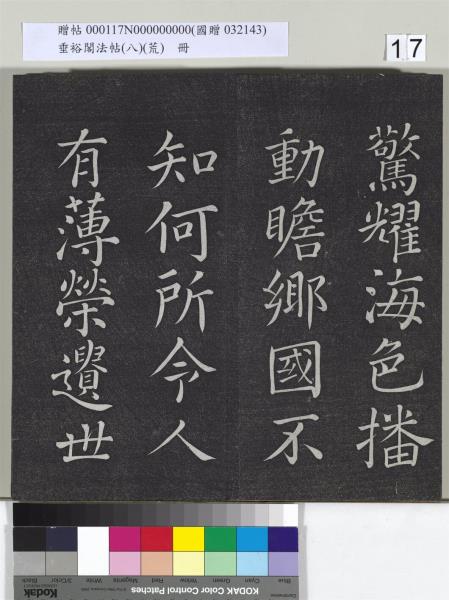 贈帖 000117N000000000(國贈 032143)
垂裕閣法帖(八)(荒) 冊
17
驚耀海色播
動瞻鄉國不
知何所令人
有薄榮遺世
Blue Cyan Green Yellow Red Magenta White 3/Color Black
Kodak
KODAK Color Control Patches